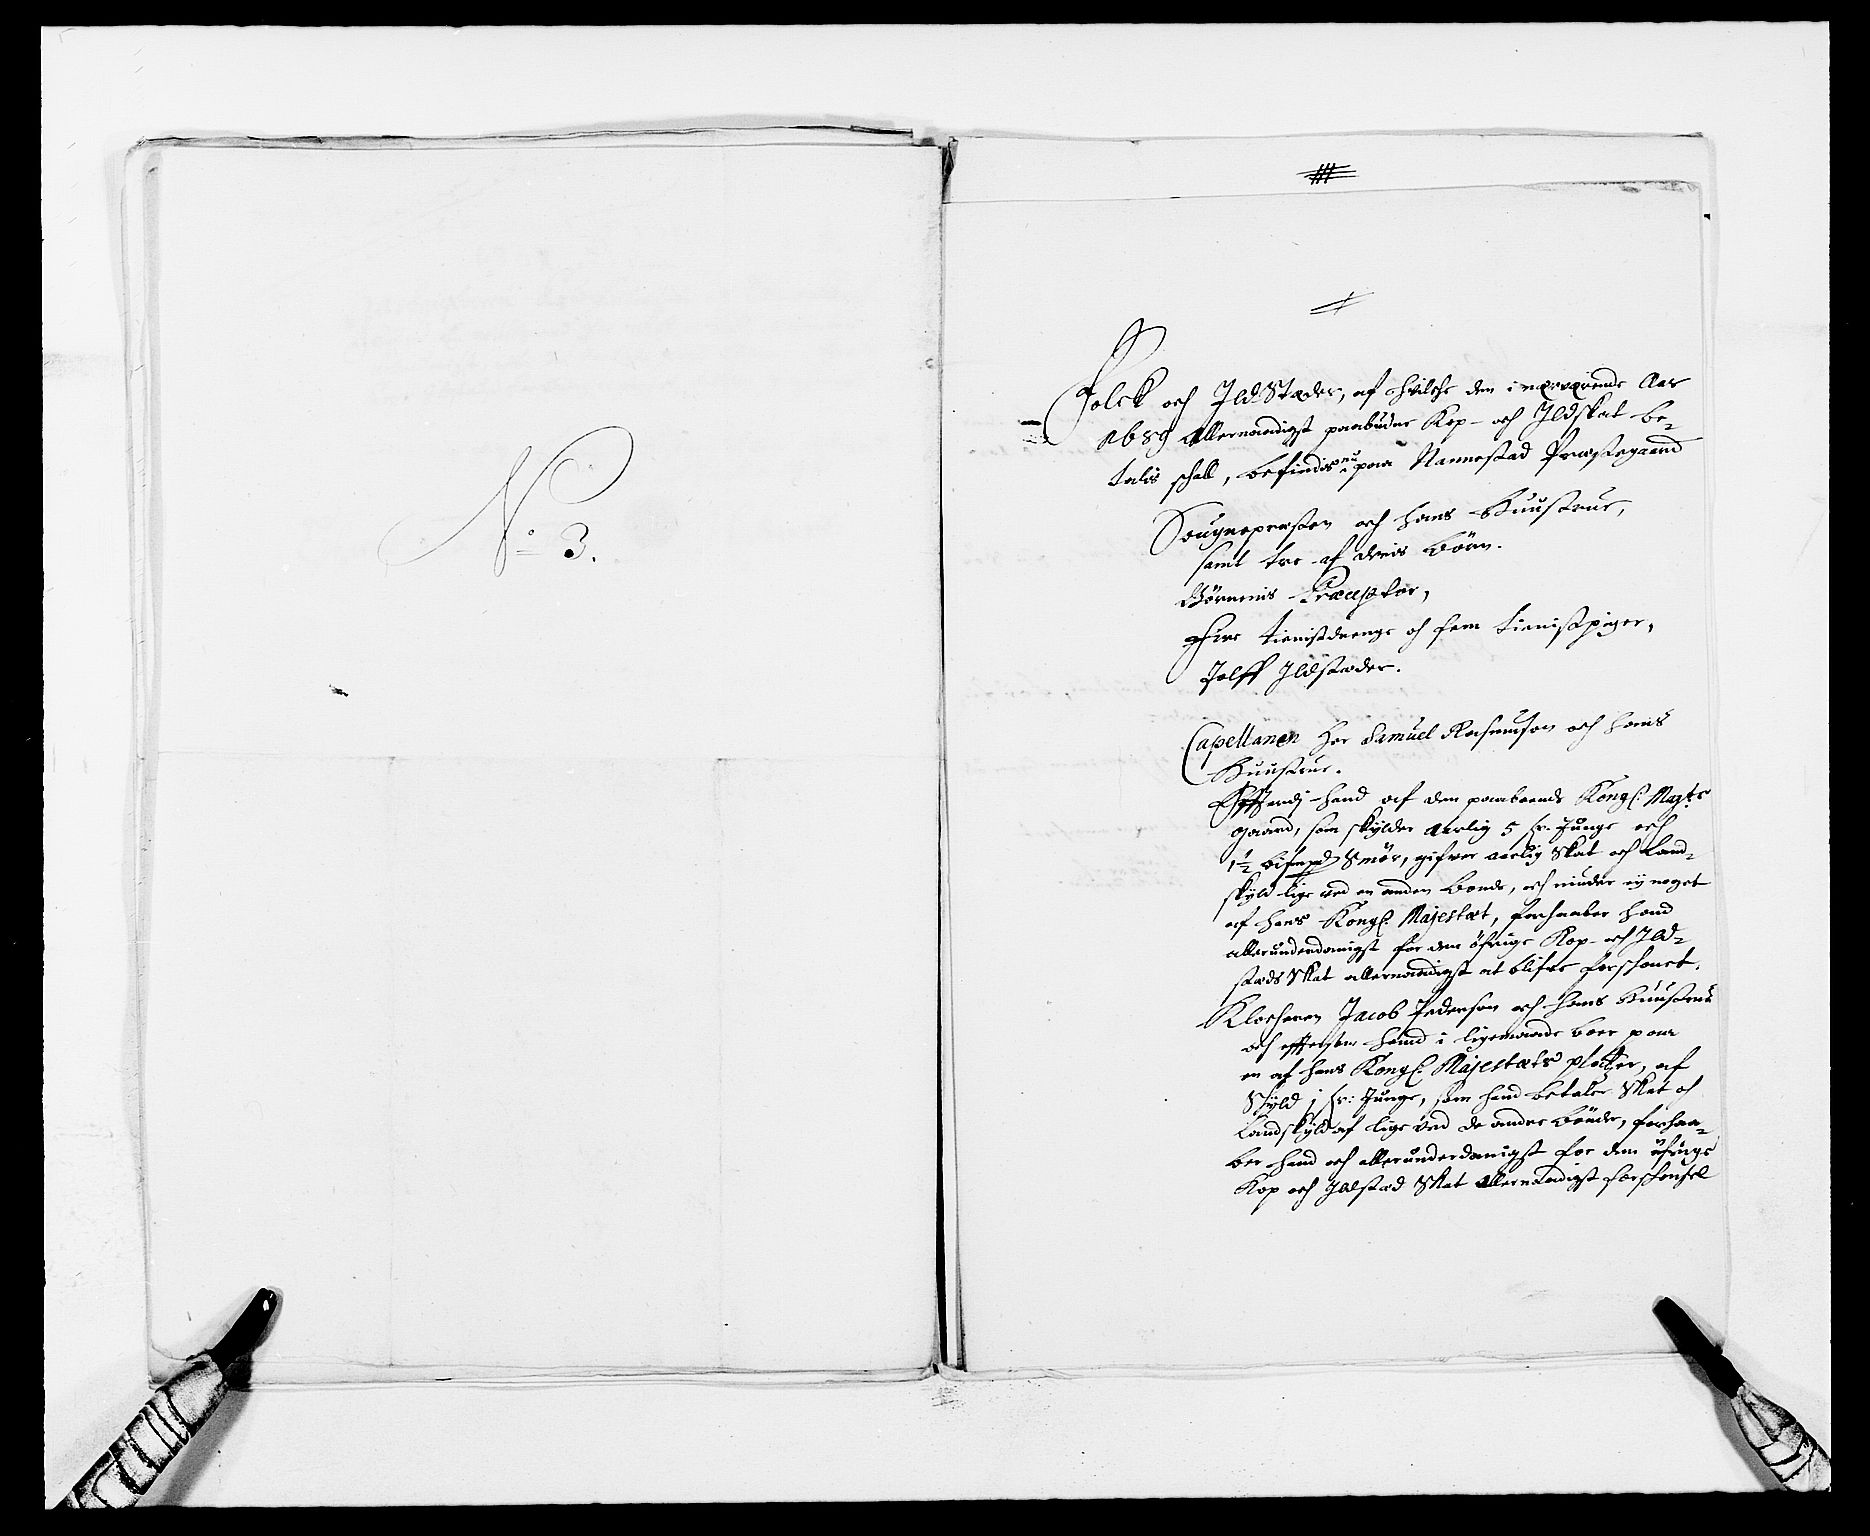 No 3.
Folck och Jld Stæder, af hvilche den i nærværende Aar
1689 allernaadigst paabudne Kop- och Jldskat be-
talis schall, befindis nu paa Nannestad Præstegaard
Sougnepræsten och hans Huustrue,
samt tre af deris Börn.
Börnenis Præceptor,
Fire tienistdrenge och fem tienistpiger,
Tolff Jldstæder.
Capellanen Her Samuel Rasmuson och hans
Huustrue.
Efftersom hand af den paaboende Kongl. Mayts
gaard, som skylder aarlig 5 fr. Tunge och
1½ bismpd Smör, gifver aarlig Skat och Land-
skyld lige ved en anden Bonde, och niuder ey noget
af hans Kongl. Majestæt, forhaaber hand
allerunderdanigst for den öfrige Kop- och Jld-
stæds Skat allernaadigst at blifve forskonet.
Klocheren Jacob Pederson och hans Huustrue
och effterson hand i ligemaade boer paa
en af hans Kongl. Majestæts pladtzer, af
Skyld j fr: Tunge, som hand betaler Skat och
Landskyld af lige ved de andre bönder, forhaa-
ber hand och allerunderdanigst for den öfrige
Kop och Jldstæd Skat allernaadigst forskonsel